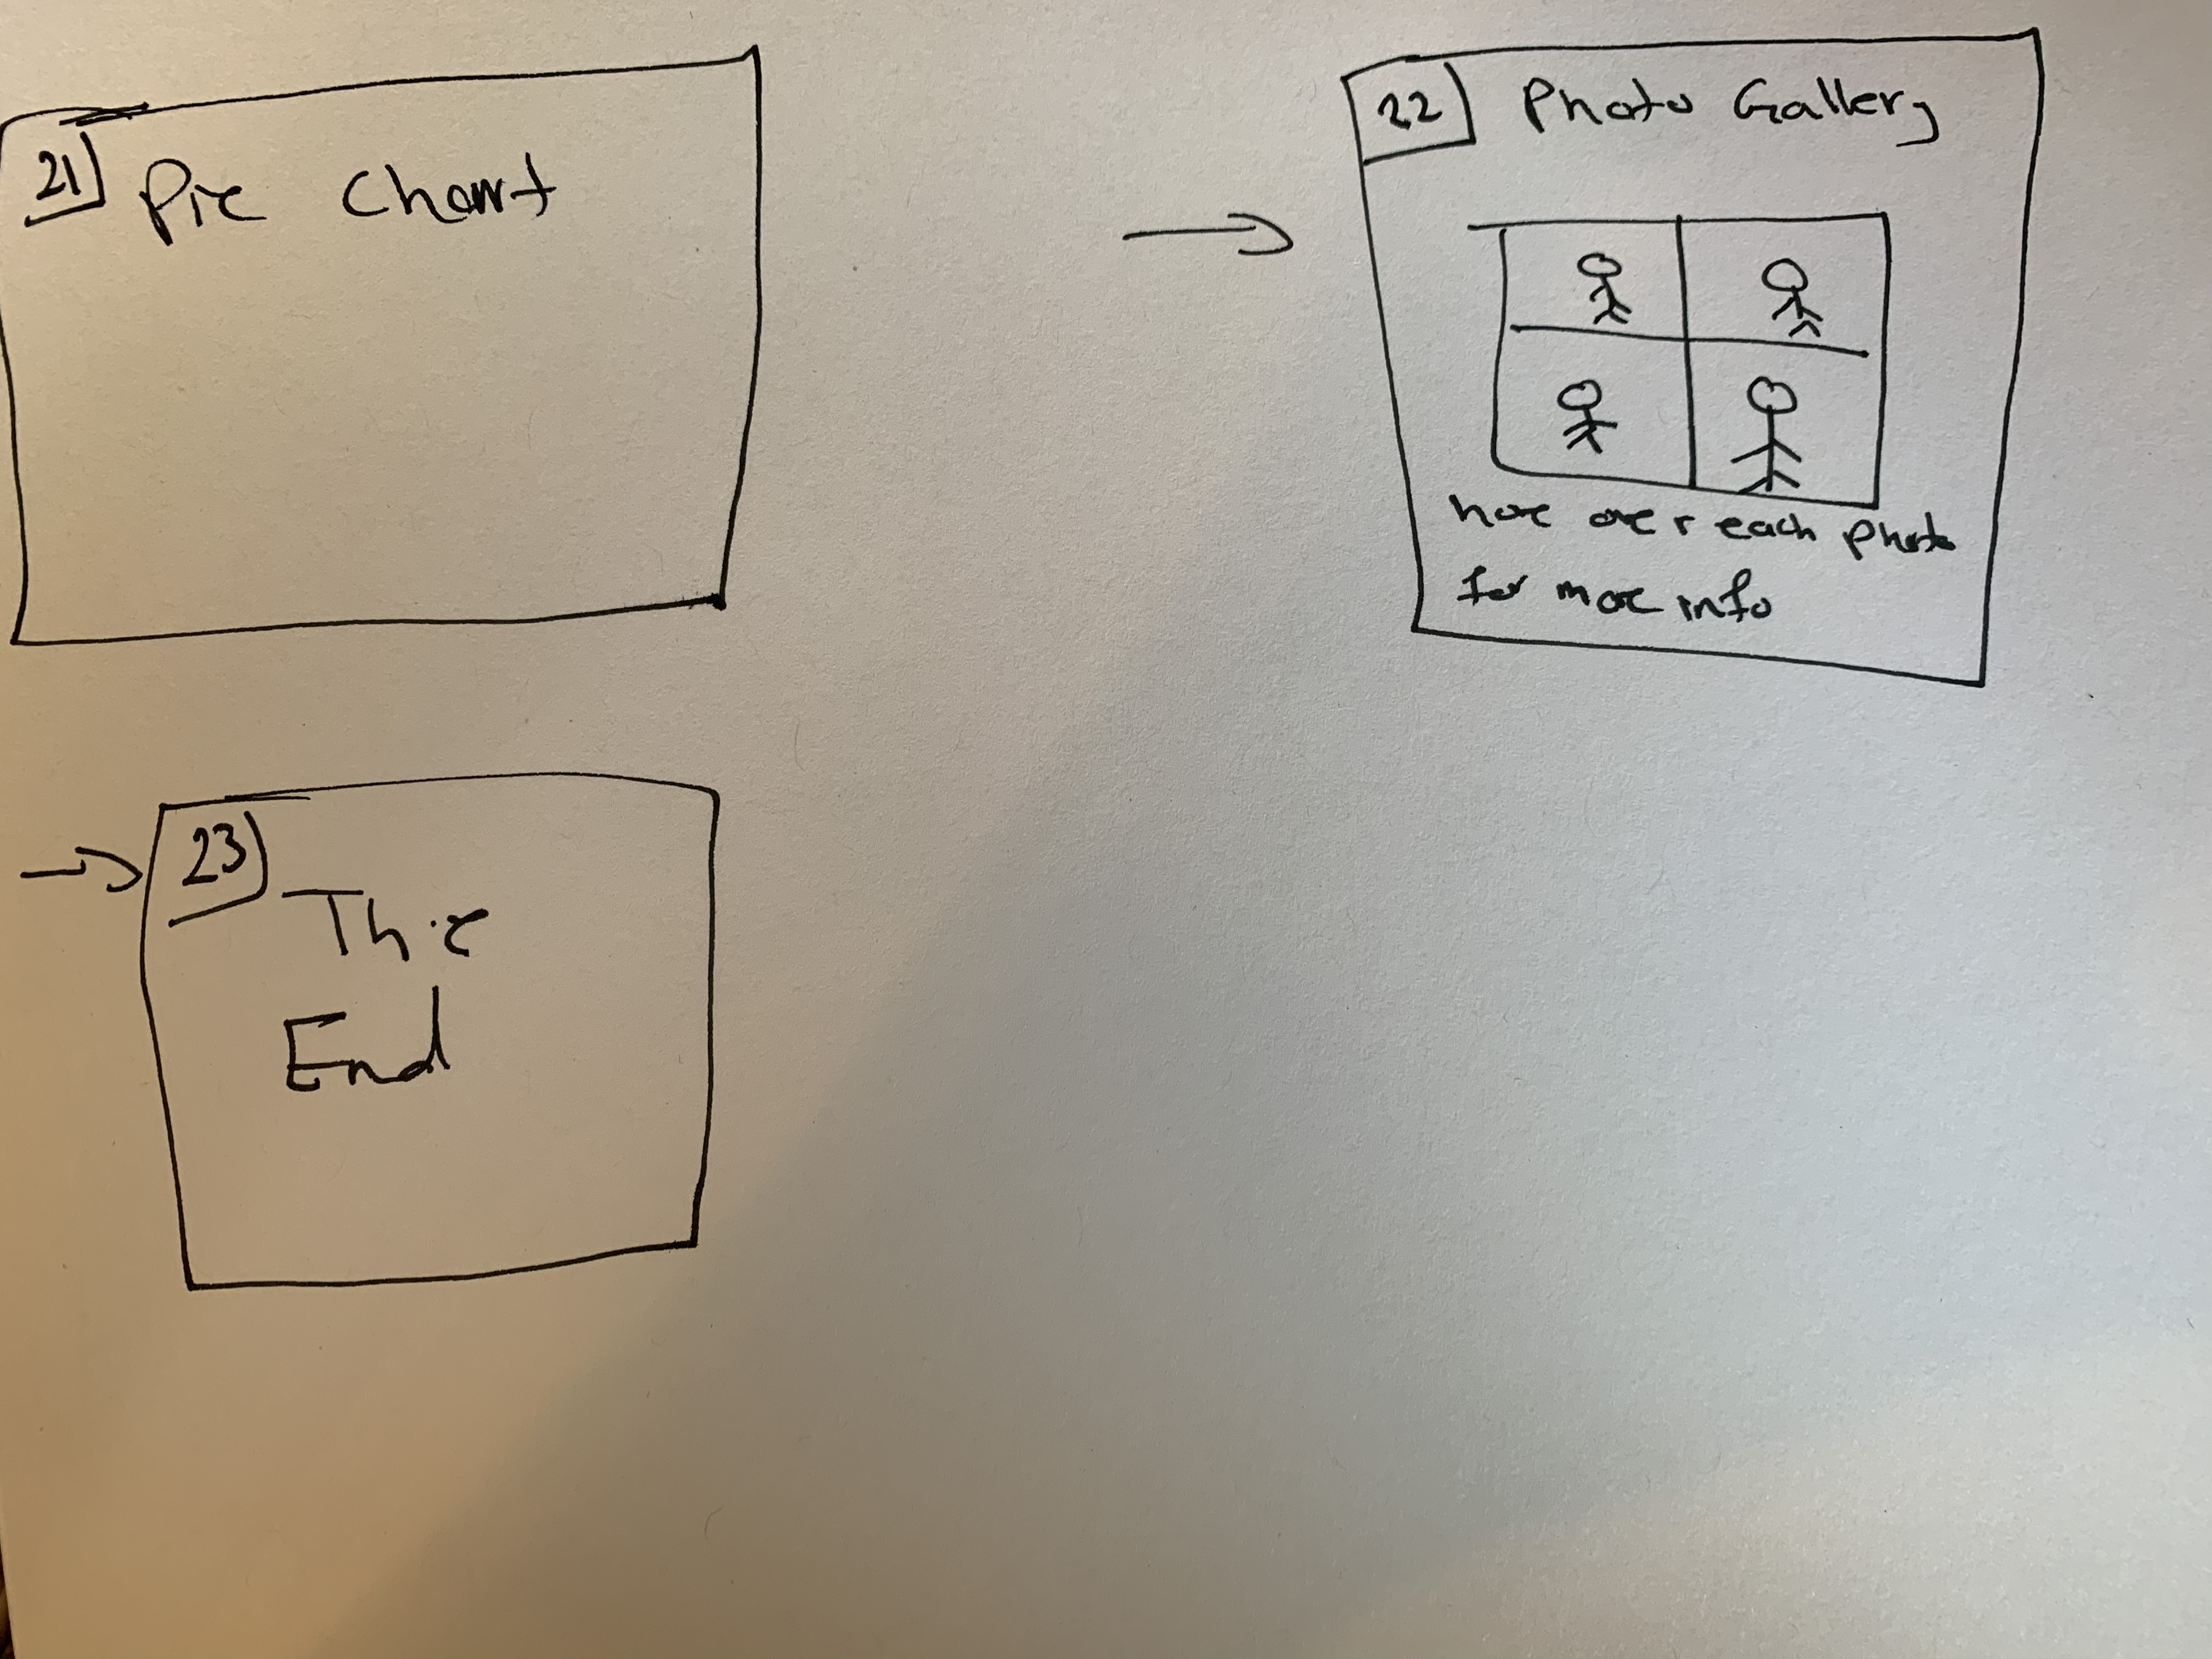 21 Pie Chart
22 Photo Gallery
hove over each photo
for more info
23
The
End